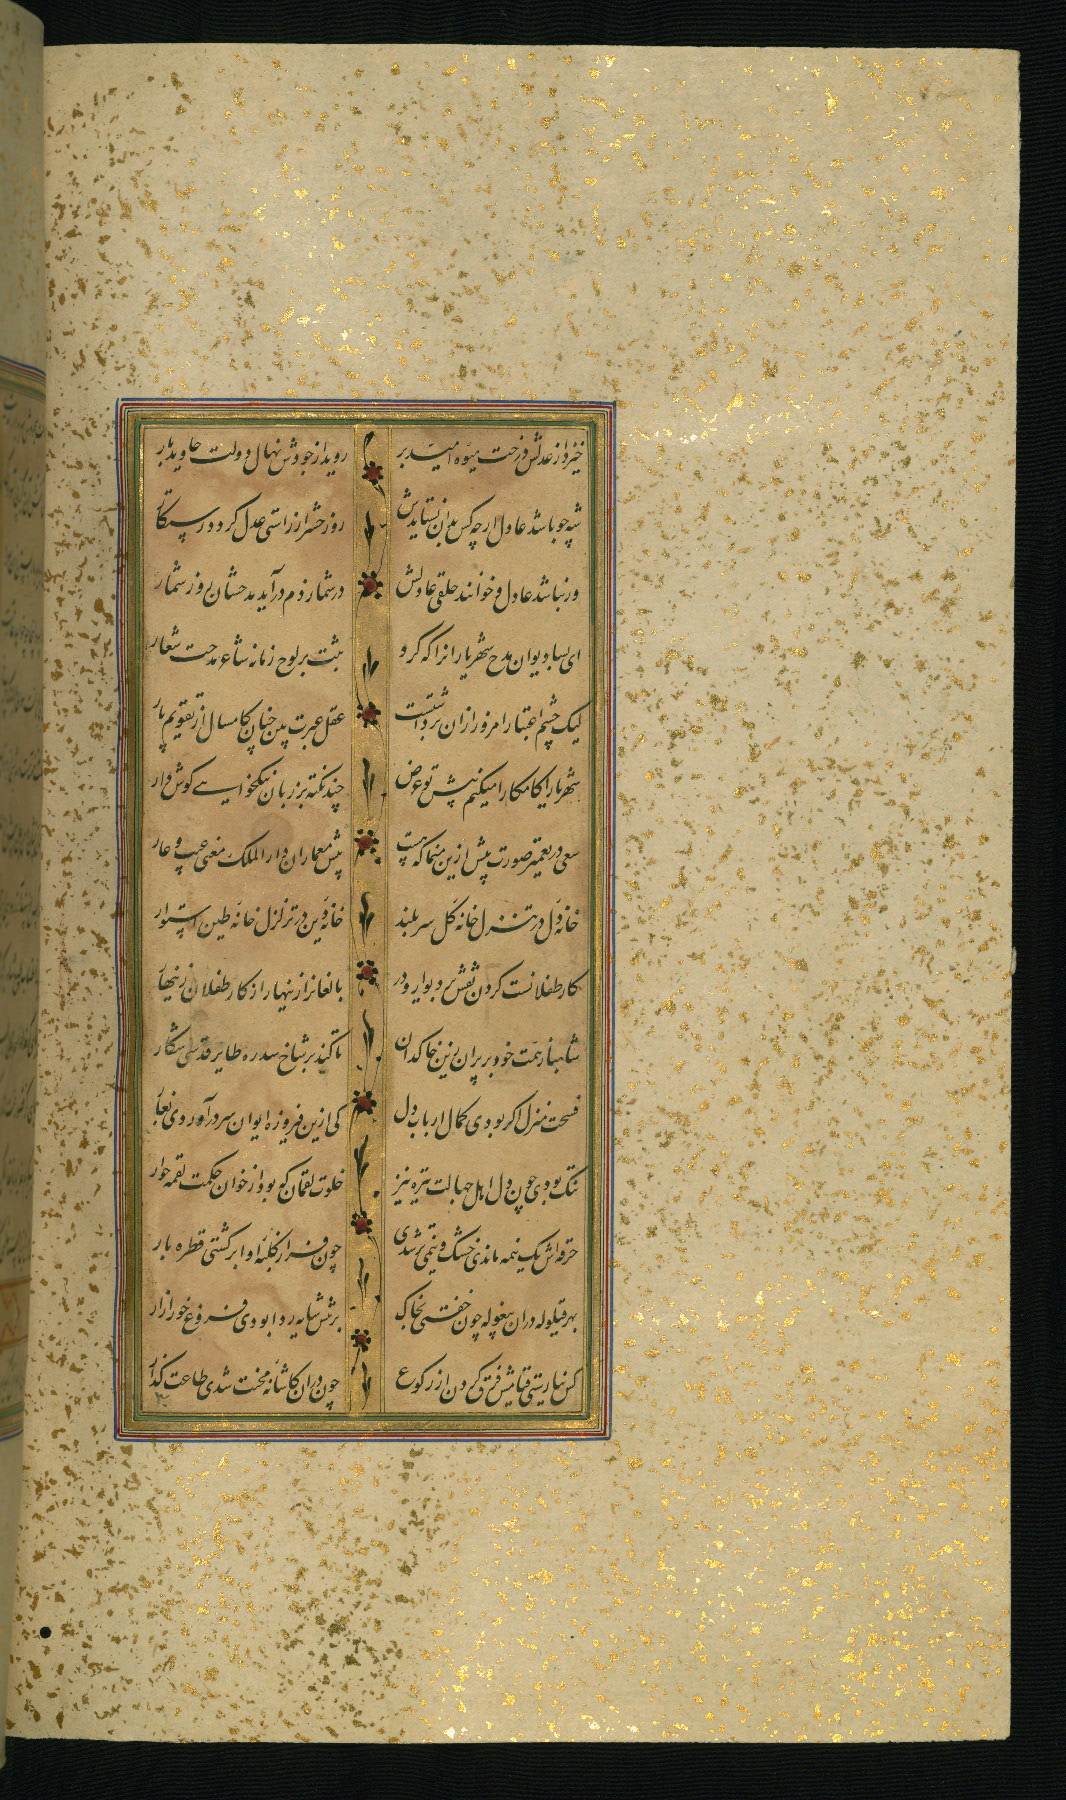 خیزد از عدلش درخت میوه امید بر روید از جودش نهال دولت جاوید بار
شه چو باشد عادل ار چه کس بدان نستایدش روز حشر از راستی عدل گردد رستگار
ور نباشد عادل و خوانند خلقی عادلش در شمار ذم در آید مدحشان روز شمار
ای بسا دیوان مدح شهریاران را که کرد ثبت بر لوح زمانه شاعر مدحت شعار
لیک چشم اعتبار امروز از ان برداشتست عقل عبرت بین چنان کامسال از تقویم پار
شهریارا کامکارا میکنم پیش تو عرض چند نکته بر زبان نیکخواهی گوش دار
سعی در تعمیر صورت پیش ازین منما که هست پیش معماران دار الملک معنی عیب و عار
خانه دل در تنزل خانه گل سر بلند خانه دین در تزلزل خانه طین استوار
کار طفلانست کردن نقش دیوار و در بالغانرا زینهار از کار طفلان زینهار
شاهباز همت خود بر پران زین خاکدان تا کند بر شاخ سدره طایر قدسی شکار
فسحت منزل اگر بودی کمال ارباب دل کی ازین فیروزه ایوان سر در آوردی بغار
تنگ بودی چون دل اهل جهالت تیره نیز خلوت لقمان که بود از خوان حکمت لقمه خوار
خرقه اش یک نیمه ماندی خشک و نیمی تر شدی چون فراز کلبه او ابر گشتی قطره بار
بهر قیلوله دران بیغوله چون خفتی بخاک فروغ خور ازار
فرق کردن از رکوع چون دران کاشانه محنت شدی طاعت گذار